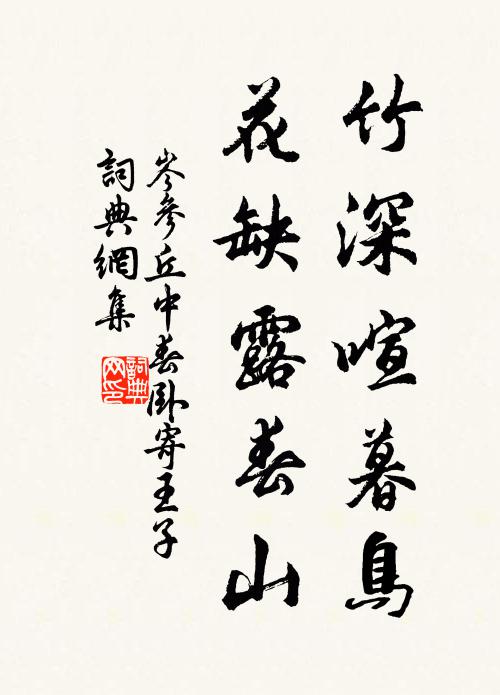 竹深喧暮鳥
花缺露春山
岑參丘中春臥寄王子
詞典網集
詞典網印